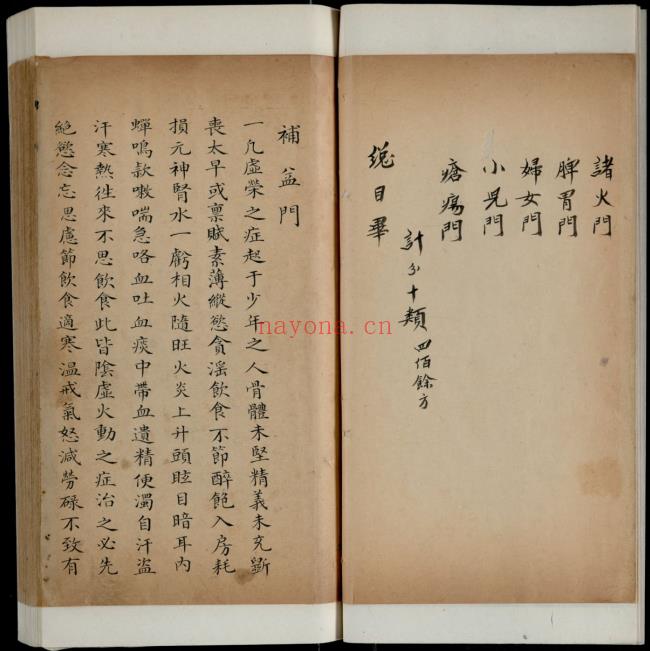 諸火門
脾胃門
婦女門
小児門
瘡瘍門
計分十類 四佰餘方
總目畢
補益門
一凡虛榮之症起于少年之人骨體未堅精義未充斷
喪太早或禀賦素薄縱慾貪淫飲食不節醉飽入房耗
損元神腎水一虧相火隨旺火炎上升頭眩目暗耳内
蟬鳴欬嗽喘急咯血吐血痰中帶血遺精便濁自汗盗
汗寒熱徃來不思飲食此皆陰虛火動之症治之必先
絶慾念忘思慮節飲食適寒温戒氣怒減勞碌不致有
nayona.cn